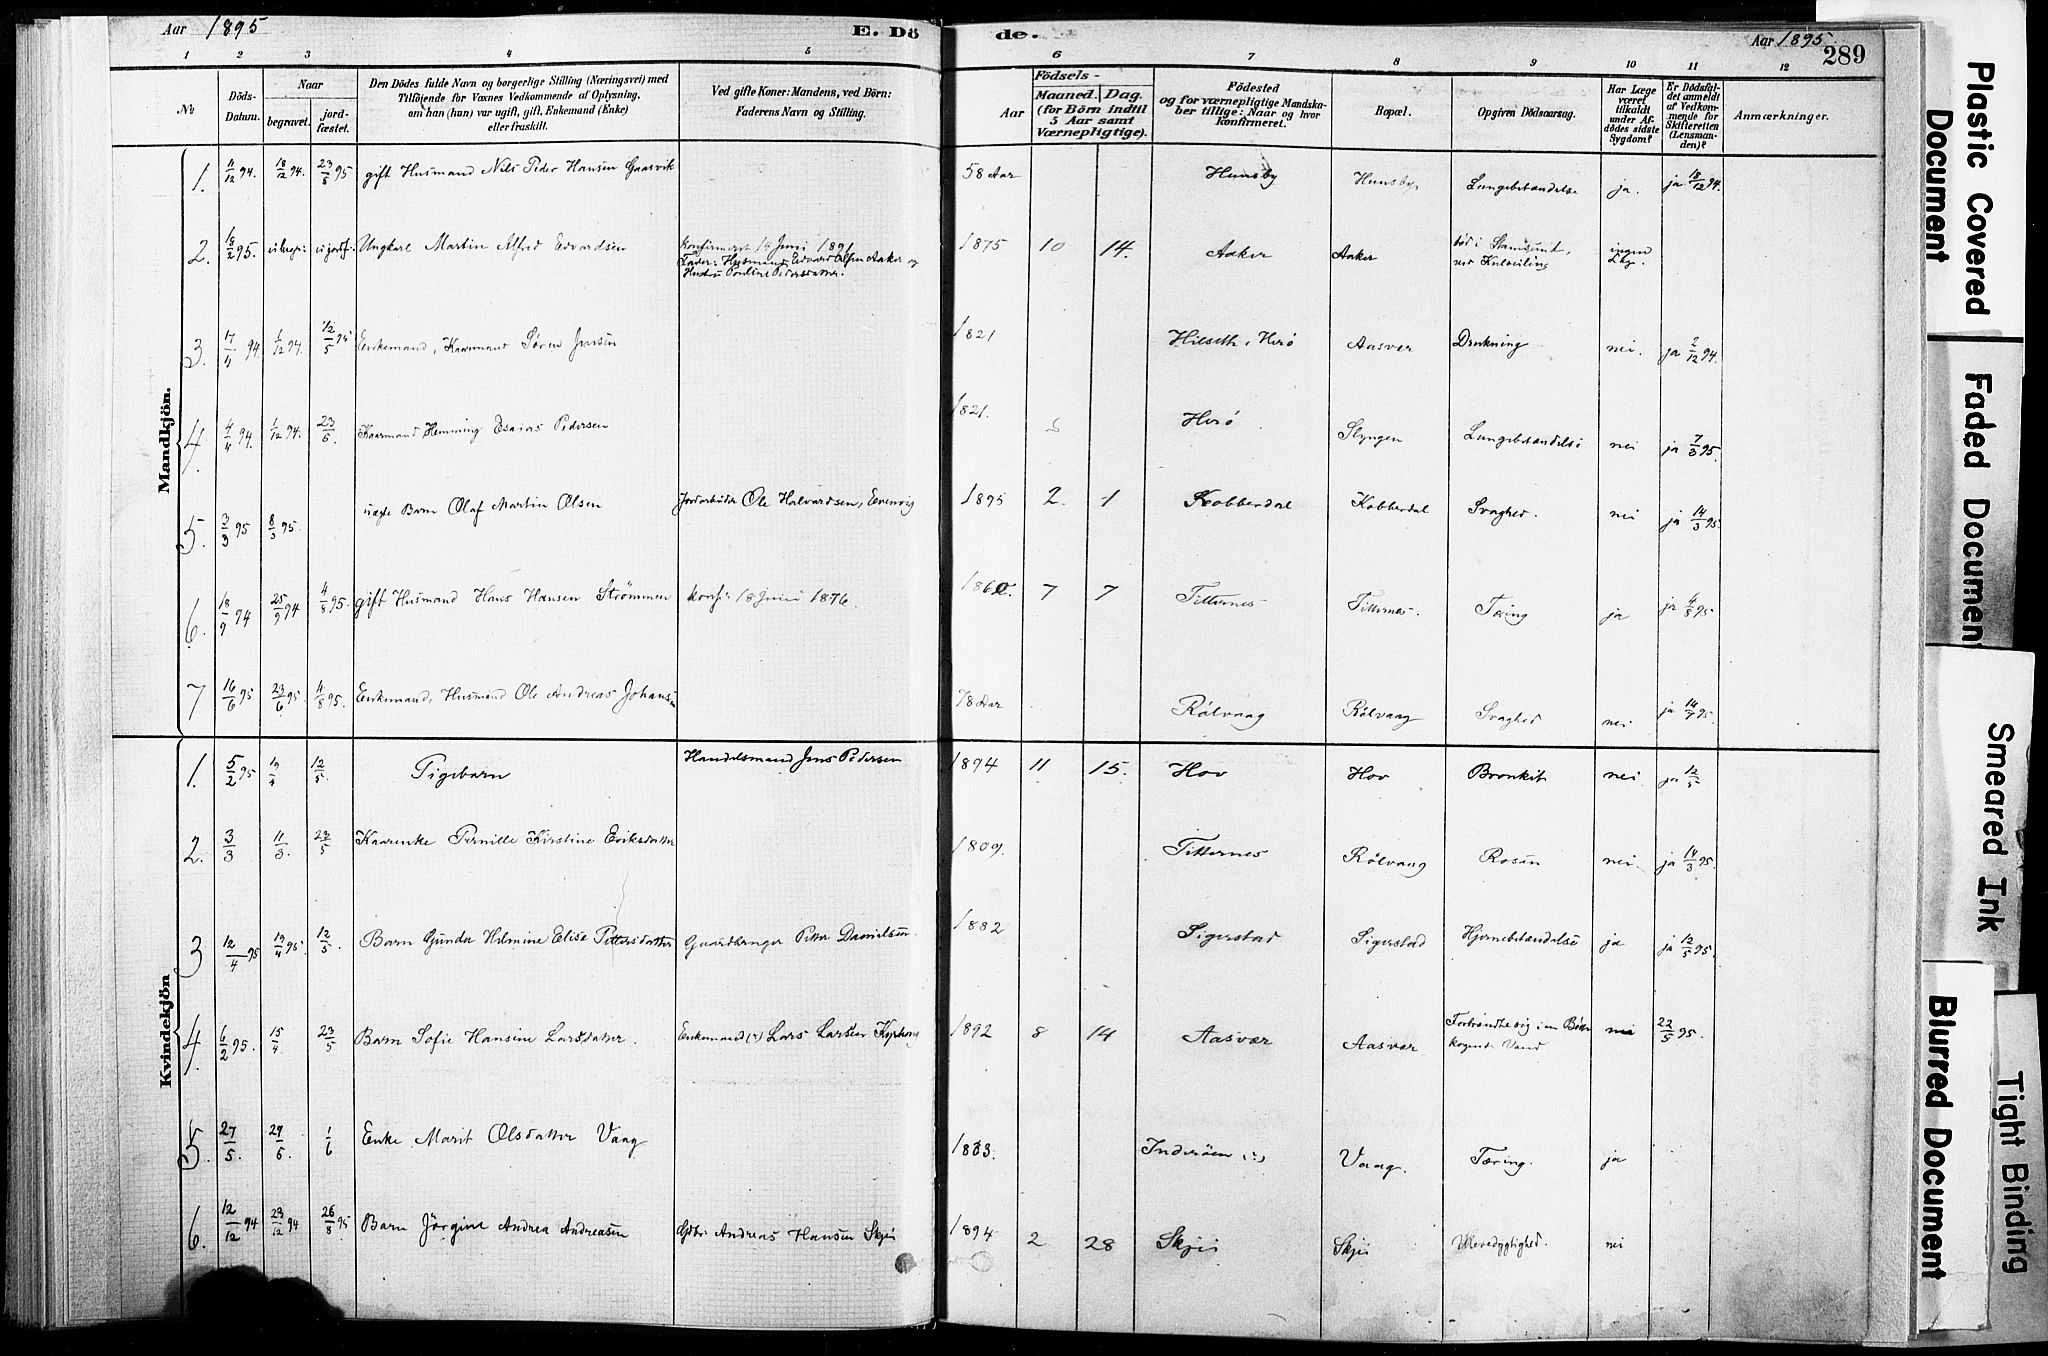 Aar 1895
E. Döde.
Aar 1895.
289
1 2 3 4 5 6 7 8 9 10 11 12
No
Döds-Datum.
Naar
begravet.
jord-fæstet.
Den Dödes fulde Navn og borgerlige Stilling (Næringsvei) med
Tilföiende for Voxnes Vedkommende af Oplysning,
om han (hun) var ugift, gift, Enkemand (Enke)
eller fraskilt.
Ved gifte Koner: Mandens, ved Börn:
Faderens Navn og Stilling.
Födsels-
Aar
Maaned. Dag.
(for Börn indtil
5 Aar samt
Værnepligtige).
Födested
og for værnepligtige Mandska-
ber tillige: Naar og hvor
Konfirmeret.
Bopæl.
Opgiven Dödsaarsag.
Har Læge
været
tilkaldt
under Af-
dödes sidste
Sygdom?
Er Dödsfal-
det anmeldt
af Vedkom-
mende for
Skifteretten
(Lensman-
den)?
Anmærkninger.
Mandkjön.
1. 11/12 94. 18/12 94. 23/5 95 gift Husmand Nils Peder Hansen Gaasvik 58 Aar Hunsby Hunsby Lungebetændelse ja. ja 18/12 94.
2. 18/2 95. Ungkarl Martin Alfred Edvardsen konfirmeret 14 Juni 1891 1875 10 14. Aaker Aaker død i Stamsund, ingen
Fader: Husmand Edvard Olsen Aaker og
Hustru Pauline Pedersdatter.
3. 17/4 94. 1/12 94. 12/5 95 Enkemand, Kaarmand Sören Jensen 1821 Hilseth, Herö Aasvær Drukning nei. ja 2/12 94.
4. 4/4 94. 1/12 94. 23/5. Kaarmand Hemming Esaias Pedersen 1821. Herö Slyngen Lungebetændelse nei ja 7/3 95.
5. 3/3 95 8/3 95. uægte Barn Olaf Martin Olsen Jordarbeider Ole Halvardsen, Evenvig 1895 2. 1 Kobberdal Kobberdal Svaghed. nei ja 14/3 95
6. 18/9 94 25/9 94 4/8 95. gift Husmand Hans Hansen Strömmen konf: 18 Juni 1876. 1860. 7 7 Titternes Titternes. Tæring ja ja 4/8 95
7 16/6 95 23/6 95. 4/8 95. Enkemand, Husmand Ole Andreas Johansen 78 Aar Rölvaag Rölvaag Svaghed nei ja 14/7 95.
Kvindekjön
1. 5/2 95 19/4 12/5. Pigebarn Handelsmand Jens Pedersen 1894 11 15. Hov Hov Bronkit nei ja 12/5
2. 3/3 11/3. 23/5 Kaarenke Pernille Kirstine Eriksdatter 1809. Titternes Rölvaag Rosen nei. ja 14/3 95.
3 12/4 95 19/4 95. 12/5. Barn Gunda Hilmine Elise Pettersdatter Gaardbruger Petter Danielsen. 1882 Sigerstad Sigerstad Hjernebetændelse ja ja 12/5 95.
4. 6/2 95. 15/4. 23/5 Barn Sofie Hansine Larsdatter. Enkemand (?) Lars Larsen 1892 8 14 Aasvær Aasvær Forbrændte sig i en Bötte nei 22/5 95.
kogende Vand
5. 27/5. 29/5. 1/6 Enke Marit Olsdatter Vaag 1833. Inderöen (?) Vaag. Tæring. ja
6. 12/12 94 23/12 94 26/8 95 Barn Jörgine Andrea Andreasen Gdbr: Andreas Hansen Skjei 1894 2 28 Skjei Skjei Ulevedygtighed. nei
Plastic Covered Document
Faded Document
Smeared Ink
Blurred Document
Tight Binding